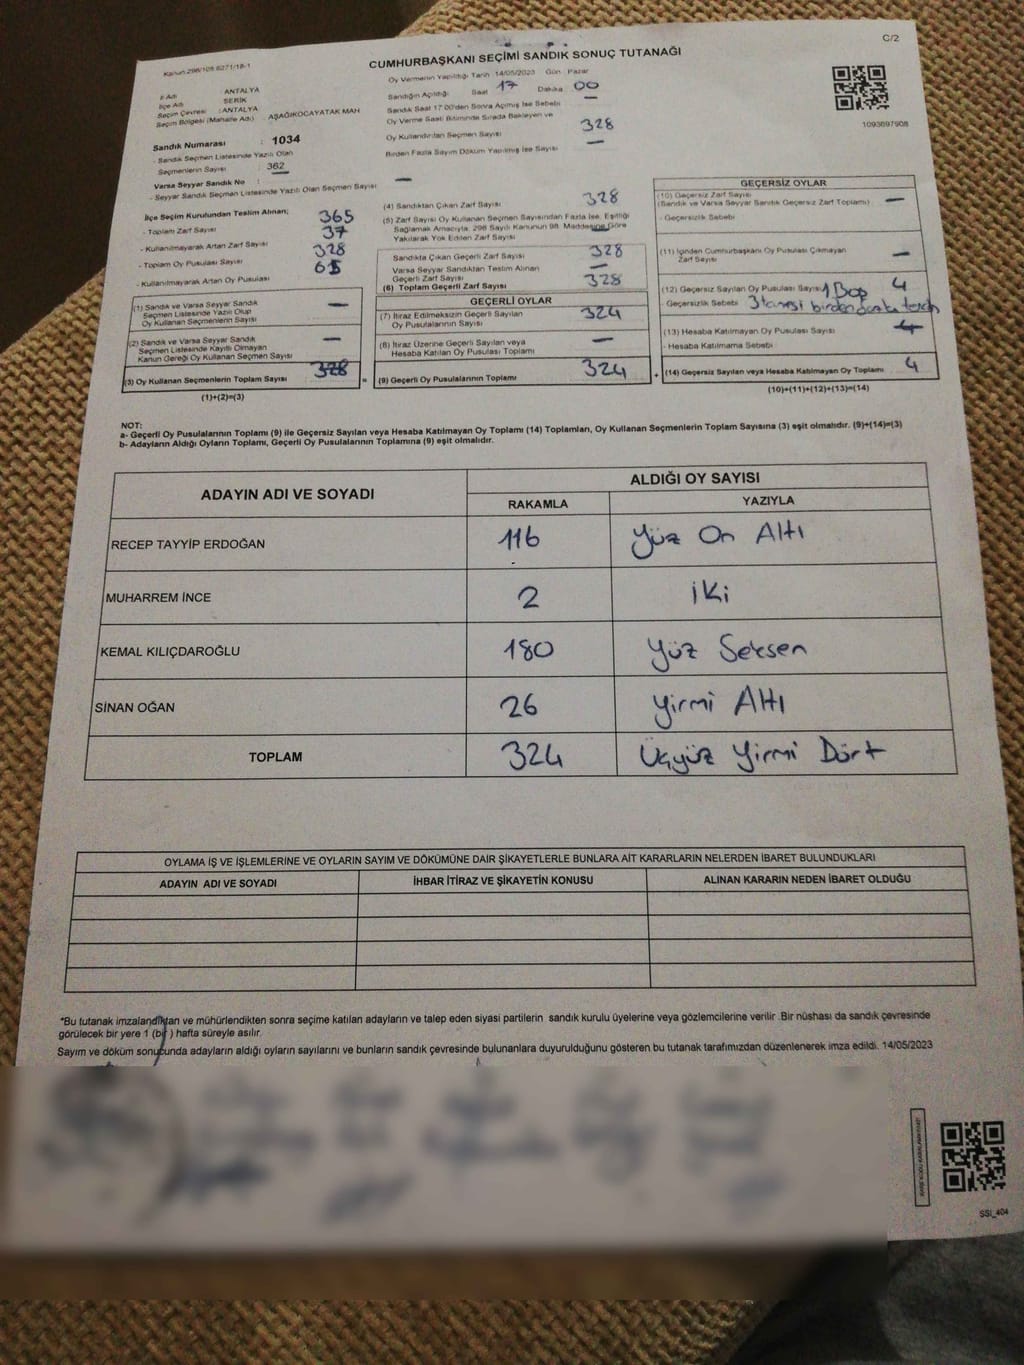 C/2
Kanun 298/105 6271/18-1
CUMHURBAŞKANI SEÇİMİ SANDIK SONUÇ TUTANAĞI
İl Adı ANTALYA
İlçe Adı SERİK
Seçim Çevresi : ANTALYA
Seçim Bölgesi (Mahalle Adı) : AŞAĞIKOCAYATAK MAH
Sandık Numarası : 1034
- Sandık Seçmen Listesinde Yazılı Olan
Seçmenlerin Sayısı : 362
Varsa Seyyar Sandık No :
- Seyyar Sandık Seçmen Listesinde Yazılı Olan Seçmen Sayısı —
Oy Vermenin Yapıldığı Tarih 14/05/2023 Gün Pazar
Sandığın Açıldığı Saat 17 Dakika 00
Sandık Saat 17.00'den Sonra Açılmış İse Sebebi —
Oy Verme Saati Bitiminde Sırada Bekleyen ve
Oy Kullandırılan Seçmen Sayısı 328
Birden Fazla Sayım Döküm Yapılmış İse Sayısı —
1093697908
İlçe Seçim Kurulundan Teslim Alınan;
- Toplam Zarf Sayısı 365
- Kullanılmayarak Artan Zarf Sayısı 37
- Toplam Oy Pusulası Sayısı 328
- Kullanılmayarak Artan Oy Pusulası
(1) Sandık ve Varsa Seyyar Sandık
Seçmen Listesinde Yazılı Olup
Oy Kullanan Seçmenlerin Sayısı —
(2) Sandık ve Varsa Seyyar Sandık
Seçmen Listesinde Kayıtlı Olmayan
Kanun Gereği Oy Kullanan Seçmen Sayısı —
(3) Oy Kullanan Seçmenlerin Toplam Sayısı 328
(1)+(2)=(3)
(4) Sandıktan Çıkan Zarf Sayısı 328
(5) Zarf Sayısı Oy Kullanan Seçmen Sayısından Fazla İse, Eşitliği
Sağlamak Amacıyla, 298 Sayılı Kanunun 98. Maddesine Göre
Yakılarak Yok Edilen Zarf Sayısı —
Sandıkta Çıkan Geçerli Zarf Sayısı 328
Varsa Seyyar Sandıktan Teslim Alınan
Geçerli Zarf Sayısı —
(6) Toplam Geçerli Zarf Sayısı 328
GEÇERLİ OYLAR
(7) İtiraz Edilmeksizin Geçerli Sayılan
Oy Pusulalarının Sayısı 324
(8) İtiraz Üzerine Geçerli Sayılan veya
Hesaba Katılan Oy Pusulası Toplamı —
= (9) Geçerli Oy Pusulalarının Toplamı 324
GEÇERSİZ OYLAR
(10) Geçersiz Zarf Sayısı
(Sandık ve Varsa Seyyar Sandık Geçersiz Zarf Toplamı) —
- Geçersizlik Sebebi
(11) İçinden Cumhurbaşkanı Oy Pusulası Çıkmayan
Zarf Sayısı —
(12) Geçersiz Sayılan Oy Pusulası Sayısı 1 Boş 4
- Geçersizlik Sebebi 3 tanesi birden tercih
(13) Hesaba Katılmayan Oy Pusulası Sayısı
- Hesaba Katılmama Sebebi
+ (14) Geçersiz Sayılan veya Hesaba Katılmayan Oy Toplamı 4
(10)+(11)+(12)+(13)=(14)
NOT:
a- Geçerli Oy Pusulalarının Toplamı (9) ile Geçersiz Sayılan veya Hesaba Katılmayan Oy Toplamı (14) Toplamları, Oy Kullanan Seçmenlerin Toplam Sayısına (3) eşit olmalıdır. (9)+(14)=(3)
b- Adayların Aldığı Oyların Toplamı, Geçerli Oy Pusulalarının Toplamına (9) eşit olmalıdır.
ADAYIN ADI VE SOYADI ALDIĞI OY SAYISI
RAKAMLA YAZIYLA
RECEP TAYYİP ERDOĞAN 116 Yüz On Altı
MUHARREM İNCE 2 iki
KEMAL KILIÇDAROĞLU 180 Yüz Seksen
SİNAN OĞAN 26 Yirmi Altı
TOPLAM 324 Üçyüz Yirmi Dört
OYLAMA İŞ VE İŞLEMLERİNE VE OYLARIN SAYIM VE DÖKÜMÜNE DAİR ŞİKAYETLERLE BUNLARA AİT KARARLARIN NELERDEN İBARET BULUNDUKLARI
ADAYIN ADI VE SOYADI İHBAR İTİRAZ VE ŞİKAYETİN KONUSU ALINAN KARARIN NEDEN İBARET OLDUĞU
*Bu tutanak imzalandıktan ve mühürlendikten sonra seçime katılan adayların ve talep eden siyasi partilerin sandık kurulu üyelerine veya gözlemcilerine verilir. Bir nüshası da sandık çevresinde
görülecek bir yere 1 (bir) hafta süreyle asılır.
Sayım ve döküm sonucunda adayların aldığı oyların sayılarını ve bunların sandık çevresinde bulunanlara duyurulduğunu gösteren bu tutanak tarafımızdan düzenlenerek imza edildi. 14/05/2023
SSI_404